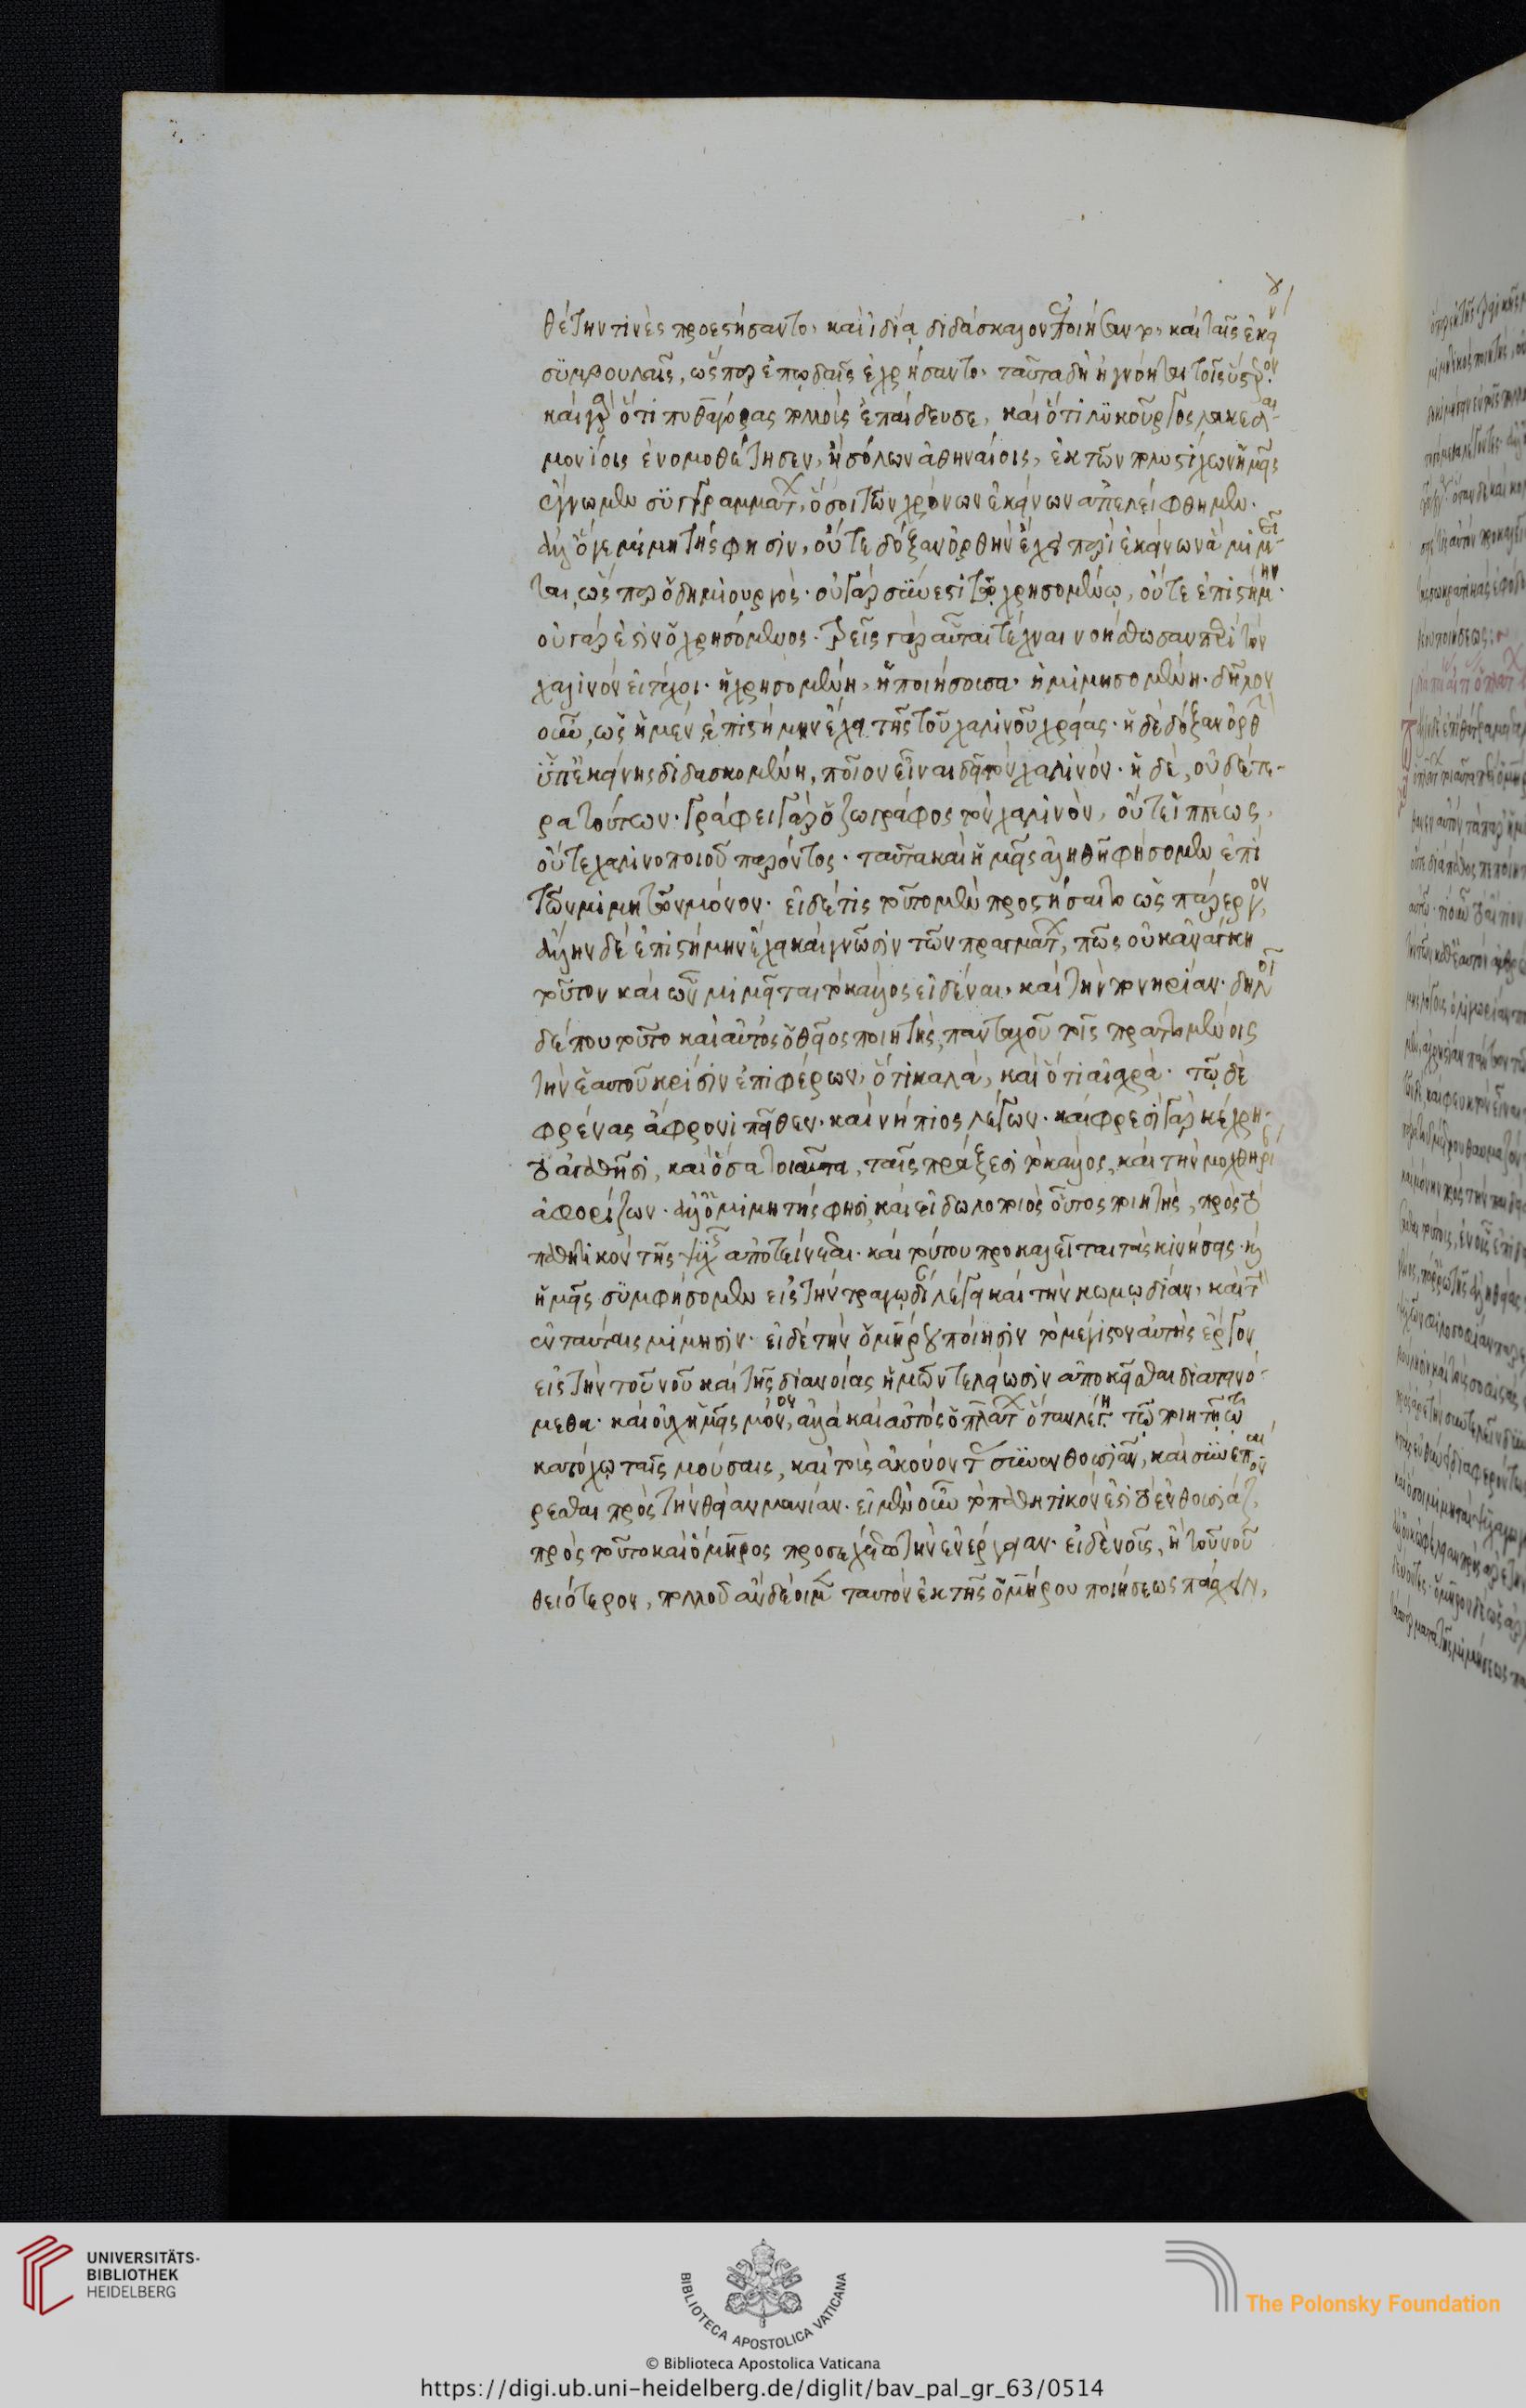 θέτην τινὲς προεστήσαντο, καὶ ἰδίᾳ διδάσκαλον ἐποιήσαντο, καὶ ταῖς ἐκείνου
συμβουλαῖς, ὥσπερ ἐπῳδαῖς ἐχρήσαντο. ταῦτα δὴ ἠγνόηται τοῖς ὕστερον.
καὶ γὰρ ὅτι πυθαγόρας πολλοὺς ἐπαίδευσε, καὶ ὅτι λυκοῦργος λακεδαι-
μονίοις ἐνομοθέτησεν, ἢ σόλων ἀθηναίοις, ἐκ τῶν πλυστίχων ἡμεῖς
ἔγνωμεν συγγραμμάτων, ὅσοι τῶν χρόνων ἐκείνων ἀπελείφθημεν.
ἀλλ' ὅγε μιμητής φησιν, οὔτε δόξαν ὀρθὴν ἔχει περὶ ἐκείνων ἃ μιμεῖ-
ται, ὥσπερ ὁ δημιουργός. οὐ γὰρ σύνεστι τῷ χρησομένῳ, οὔτε ἐπιστήμην.
οὐ γάρ ἐστιν ὁ χρησόμενος. τρεῖς γὰρ αὗται τέχναι νοείσθωσαν περὶ τὸν
χαλινὸν εἰ τύχοι. ἡ χρησομένη, ἡ ποιήσουσα. ἡ μιμησομένη. δῆλον
οὖν, ὡς ἡ μὲν ἐπιστήμην ἔχει τῆς τοῦ χαλινοῦ χρείας. ἡ δὲ δόξαν ὀρθὴν
ὑπ' ἐκείνης διδασκομένη, ποῖον εἶναι δεῖ τὸν χαλινόν. ἡ δὲ, οὐδέτε-
ρα τούτων. γράφει γὰρ ὁ ζωγράφος τὸν χαλινὸν, οὔτε ἱππέως,
οὔτε χαλινοποιοῦ παρόντος. ταῦτα καὶ ἡμεῖς ἀληθῆ φήσομεν ἐπὶ
τῶν μιμητῶν μόνον. εἰ δέ τις τοῦτο μὲν προστήσαιτο ὡς πάρεργον,
ἄλλην δὲ ἐπιστήμην ἔχει καὶ γνῶσιν τῶν πραγμάτων, πῶς οὐκ ἀνάγκη
τοῦτον καὶ ὧν μιμεῖται τὸ κάλλος εἰδέναι, καὶ τὴν πονηρίαν. δηλοῖ
δέ που τοῦτο καὶ αὐτὸς ὁ θεῖος ποιητὴς, πανταχοῦ τοῖς πραττομένοις
τὴν ἑαυτοῦ κρίσιν ἐπιφέρων, ὅτι καλὰ, καὶ ὅτι αἰσχρά. τῷ δὲ
φρένας ἄφρονι πεῖθεν. καὶ νήπιος λέγων. καὶ φρεσὶ γὰρ κέχρη-
το ἀγαθῇσι, καὶ ὅσα τοιαῦτα, ταῖς πράξεσι τὸ κάλλος, καὶ τὴν μοχθηρί
ἀφορίζων. ἀλλ' ὁ μιμητής φησι, καὶ εἰδωλοποιὸς οὗτος ποιητὴς, πρὸς τὸ
παθητικὸν τῆς ψυχῆς ἀποτείνεται. καὶ τούτου προκαλεῖται τὰς κινήσεις. καὶ
ἡμεῖς συμφήσομεν εἰς τὴν τραγῳδίαν λέγει καὶ τὴν κωμῳδίαν, καὶ τὴν
ἐν ταύταις μίμησιν. εἰ δὲ τὴν ὁμήρου ποίησιν τὸ μέγιστον αὐτῆς ἔργον
εἰς τὴν τοῦ νοῦ καὶ τῆς διανοίας ἡμῶν τελείωσιν ἀποκεῖσθαι διατεινό-
μεθα. καὶ οὐχ ἡμεῖς μόνον, ἀλλὰ καὶ αὐτὸς ὁ πλάτων ὅταν λέγῃ τῷ ποιητῇ τῷ
κατόχῳ ταῖς μούσαις, καὶ τοὺς ἀκούοντας συνενθουσιᾶν, καὶ συνεπαί-
ρεσθαι πρὸς τὴν θείαν μανίαν. εἰ μὲν οὖν τὸ παθητικόν ἐστι τὸ ἐνθουσιάζον,
πρὸς τοῦτο καὶ ὅμηρος προσεχέτω τὴν ἐνέργειαν. εἰ δὲ νοῦς, ἢ τοῦ νοῦ
θειότερον, πολλοῦ ἂν δέοιμεν ταυτὸν ἐκ τῆς ὁμήρου ποιήσεως πάσχειν,
UNIVERSITÄTS-
BIBLIOTHEK
HEIDELBERG
BIBLIOTECA APOSTOLICA VATICANA
The Polonsky Foundation
© Biblioteca Apostolica Vaticana
https://digi.ub.uni-heidelberg.de/diglit/bav_pal_gr_63/0514